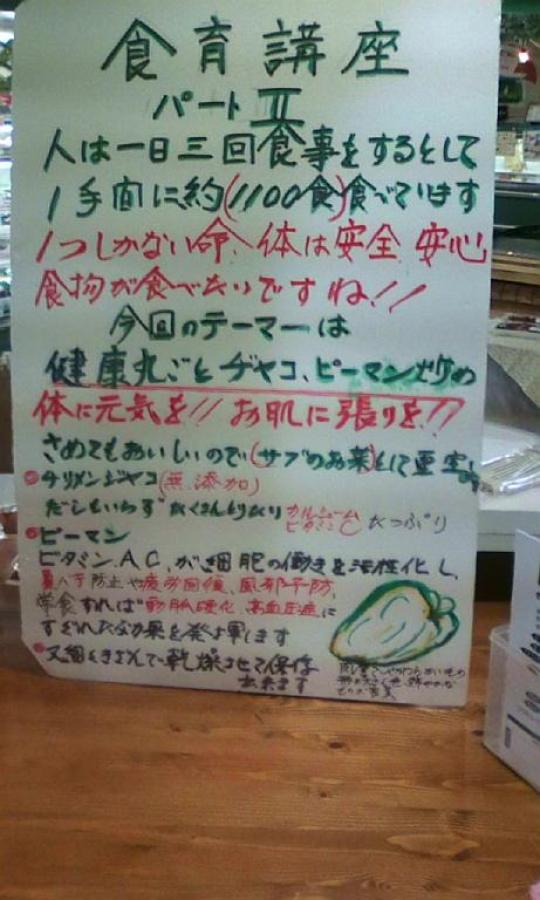 食育講座
パートⅡ
人は一日三回食事をするとして
1年間に約(1100食)食べています
1つしかない命、体は安全 安心
食物が食べたいですね!!
今回のテーマーは
健康丸ごとヂヤコ、ピーマン炒め
体に元気を!! お肌に張りを!!
さめてもおいしいので(サブのお菜)として重宝
チリメンジヤコ(無添加)
だしもいらず たくさんとりカルシューム
ビタミンC たっぷり
ピーマン
ビタミン.A.C.が細胞の働きを活性化し、
夏バテ防止や疲労回復、風邪予防、
常食すれば動脈硬化、高血圧症に
すぐれた効果を発揮します
又細くきざんで乾燥させて保存
出来ます